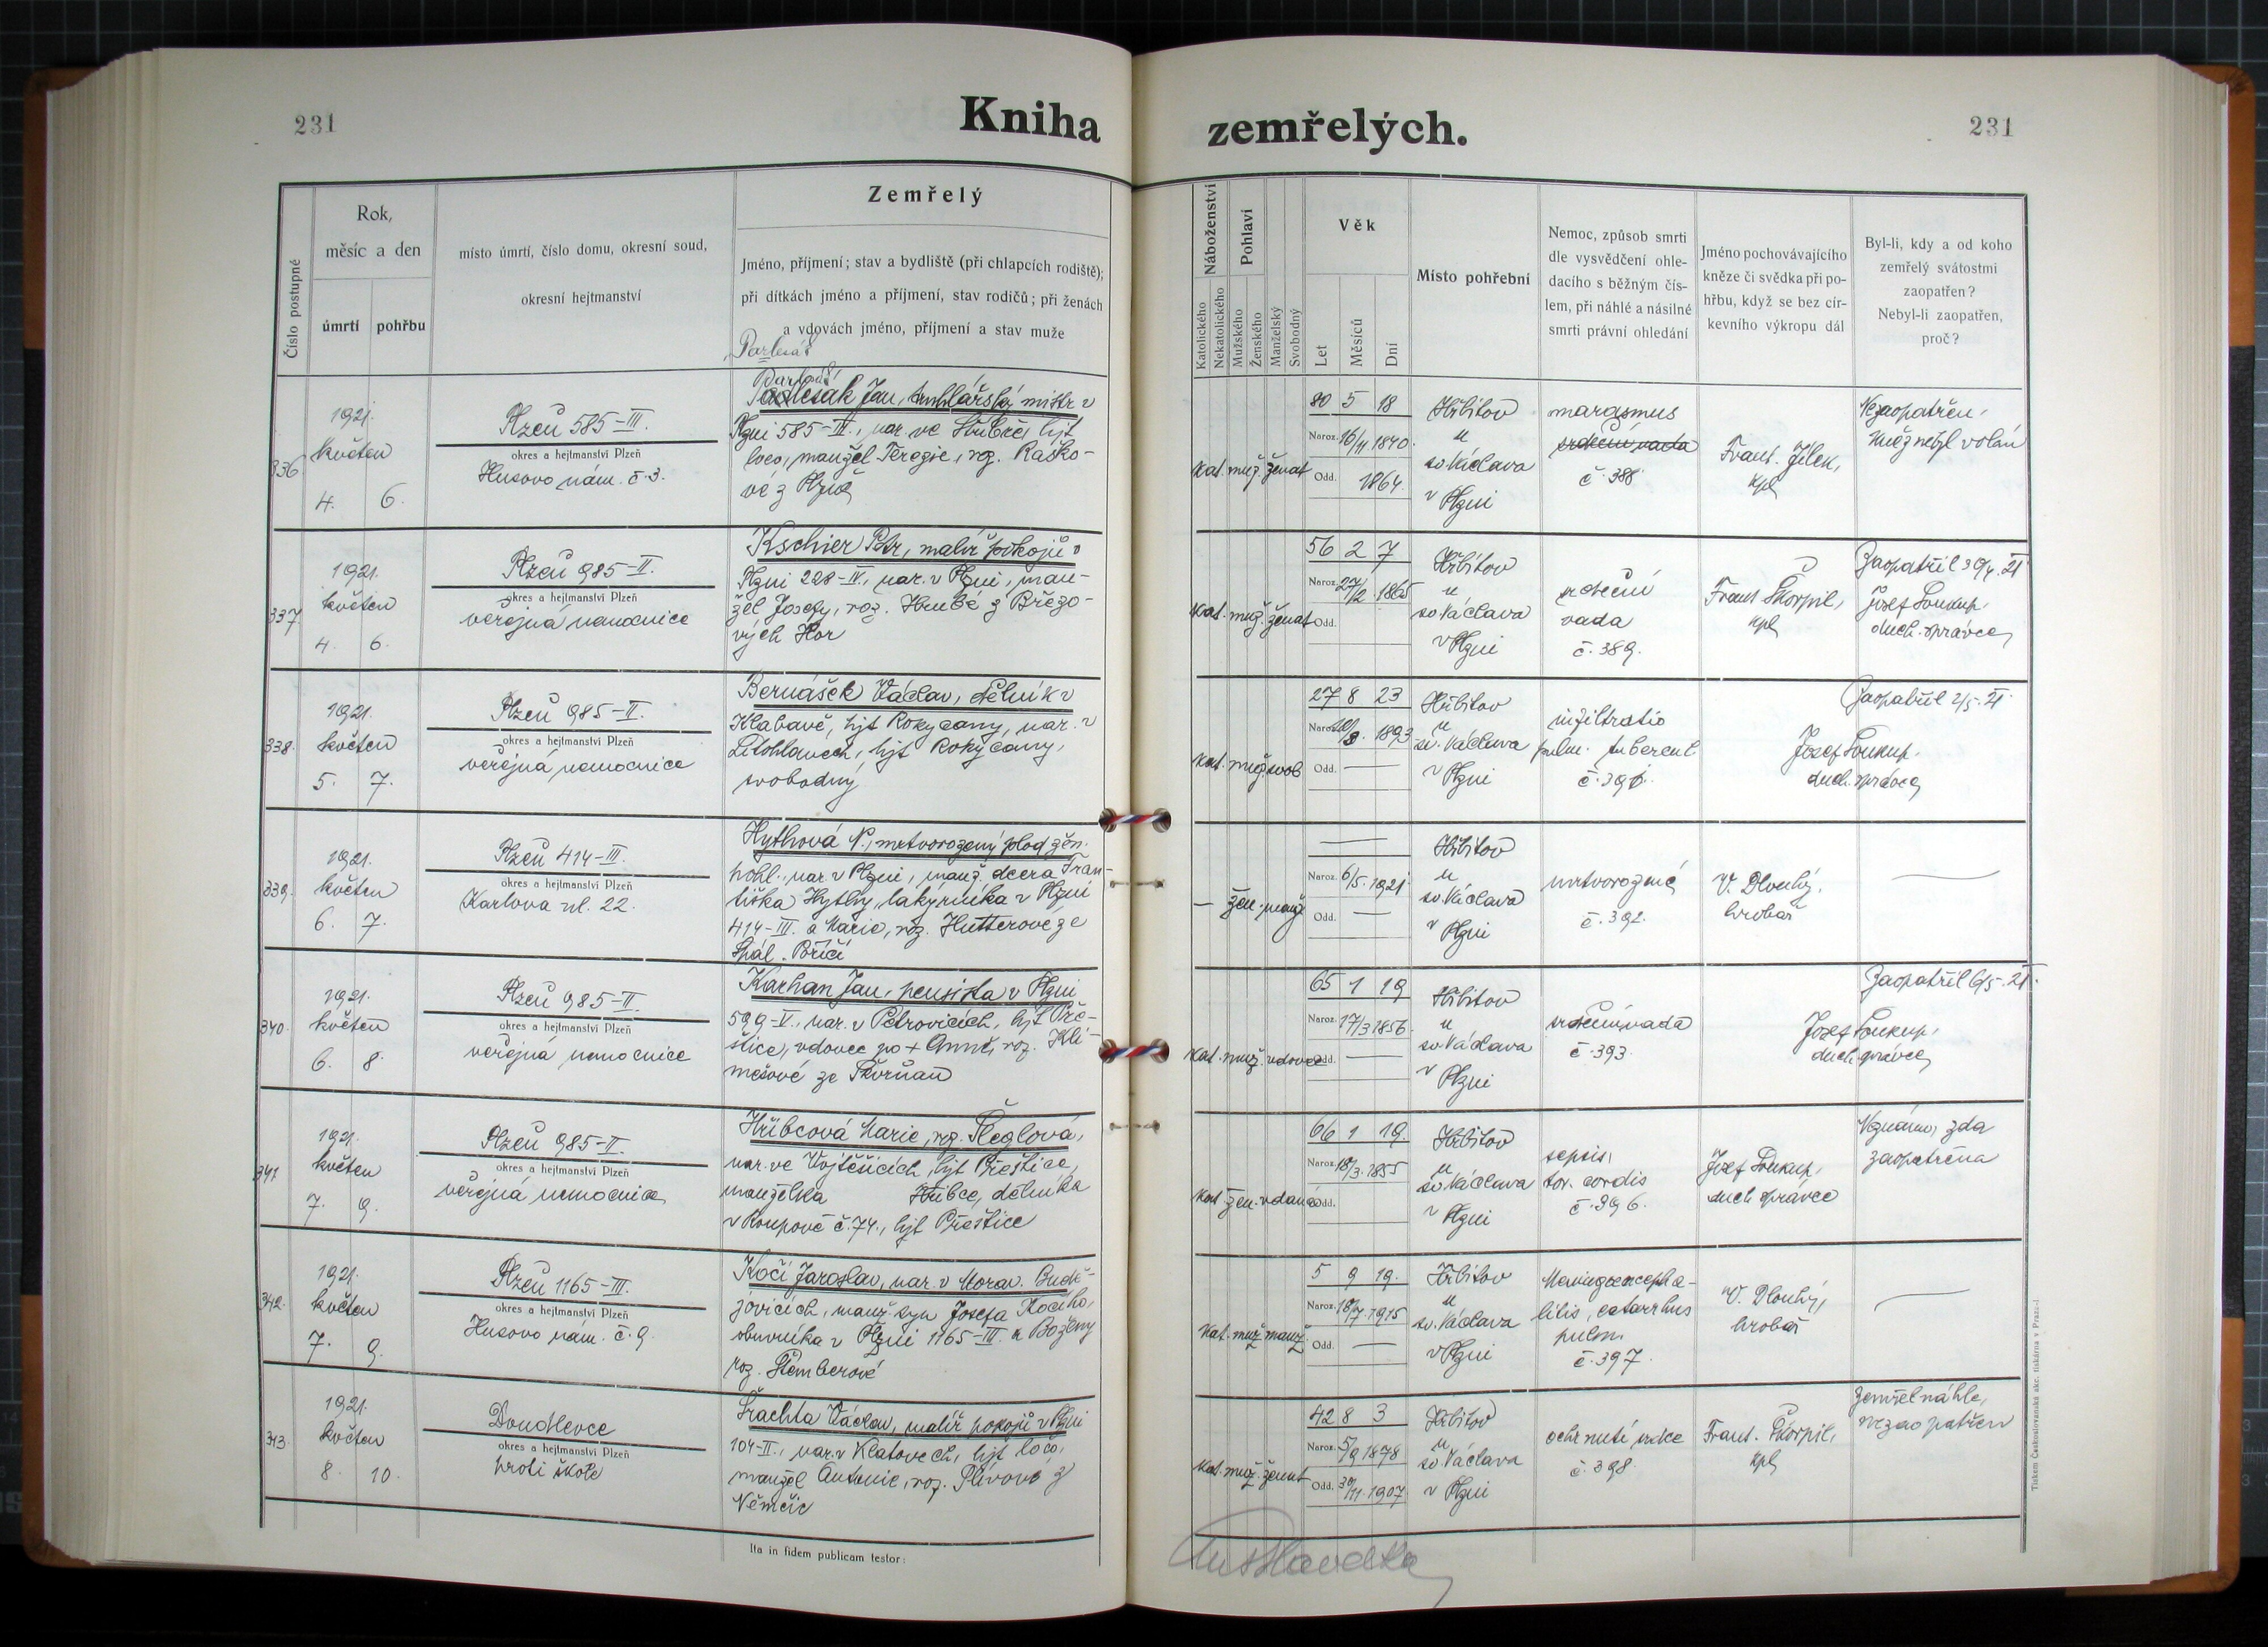 231
Kniha
zemřelých.
231
Číslo postupné
Rok,
měsíc a den
úmrtí
pohřbu
místo úmrtí, číslo domu, okresní soud,
okresní hejtmanství
Zemřelý
Jméno, příjmení; stav a bydliště (při chlapcích rodiště);
při dítkách jméno a příjmení, stav rodičů; při ženách
a vdovách jméno, příjmení a stav muže
Náboženství
Katolického
Nekatolického
Pohlaví
Mužského
Ženského
Manželský
Svobodný
Věk
Let
Měsíců
Dní
Místo pohřební
Nemoc, způsob smrti
dle vysvědčení ohle-
dacího s běžným čís-
lem, při náhlé a násilné
smrti právní ohledání
Jméno pochovávajícího
kněze či svědka při po-
hřbu, když se bez cír-
kevního výkropu dál
Byl-li, kdy a od koho
zemřelý svátostmi
zaopatřen?
Nebyl-li zaopatřen,
proč?
336
1921.
květen
4. 6.
Plzeň 585-III.
okres a hejtmanství Plzeň
Husovo nám. č. 3.
Jan, truhlářský mistr v
Plzni 585-III., nar. ve Stříbře, hjt
loco, manžel Terezie, roz. Raško-
vé z Plzně
kat. muž. ženat
80 5 18
Naroz. 16/11 1840.
Odd. 1864.
Hřbitov
u
sv. Václava
v Plzni
marasmus
srdeční vada
č. 388
Frant. Jílek,
kpl
Nezaopatřen,
kněz nebyl volán
337
1921.
květen
4. 6.
Plzeň 985-II.
okres a hejtmanství Plzeň
veřejná nemocnice
Kschier Petr, malíř pokojů v
Plzni 228-IV., nar. v Plzni, man-
žel Josefy, roz. Hrubé z Březo-
vých Hor
kat. muž. ženat
56 2 7
Naroz. 27/2 1865
Odd.
Hřbitov
u
sv. Václava
v Plzni
srdeční
vada
č. 389.
Frant. Škorpil,
kpl
Zaopatřil 30/4. 21
Josef Soukup,
duch. správce
338.
1921.
květen
5. 7.
Plzeň 985-II.
okres a hejtmanství Plzeň
veřejná nemocnice
Bernášek Václav, dělník v
Klabavě, hjt Rokycany, nar. v
Litohlavech, hjt Rokycany,
svobodný
kat. muž. svob
27 8 23
Naroz. 1893
Odd. —
Hřbitov
u
sv. Václava
v Plzni
infiltratio
pulm. tubercul
Zaopatřil 2/5. 21
Josef Soukup,
duch. správce
339.
1921.
květen
6. 7.
Plzeň 414-III.
okres a hejtmanství Plzeň
Karlova ul. 22.
Hythová N., mrtvorozený plod žen.
pohl., nar. v Plzni, manž. dcera Fran-
tiška Hythy, lakýrníka v Plzni
414-III. a Marie, roz. Hutterové ze
Spál. Poříčí
— žen. manž
—
Naroz. 6/5. 1921
Odd. —
Hřbitov
u
sv. Václava
v Plzni
mrtvorozené
č. 392.
V. Dlouhý,
hrobař
—
340.
1921.
květen
6. 8.
Plzeň 985-II.
okres a hejtmanství Plzeň
veřejná nemocnice
Karhan Jan, pensista v Plzni
599-V., nar. v Petrovicích, hjt Pře-
štice, vdovec po + Anně, roz. Kli-
mešové ze Skvrňan
kat. muž. vdovec
65 1 19
Naroz. 17/3 1856.
Odd. —
Hřbitov
u
sv. Václava
v Plzni
srdeční vada
č. 393.
Zaopatřil 6/5. 21.
Josef Soukup,
duch. správce
341
1921.
květen
7. 9.
Plzeň 985-II.
okres a hejtmanství Plzeň
veřejná nemocnice
Hřibcová Marie, roz. Šleglová,
nar. ve Vojtěšicích, hjt Přeštice,
manželka Hřibce, dělníka
v Roupově č. 74., hjt Přeštice
kat. žen. vdaná
66 1 19.
Naroz. 18/3. 1855
Odd.
Hřbitov
u
sv. Václava
v Plzni
sepsis,
cordis
č. 396.
Josef Soukup,
duch. správce
Neznámo, zda
zaopatřena
342.
1921.
květen
7. 9.
Plzeň 1165-III.
okres a hejtmanství Plzeň
Husovo nám. č. 9.
Kočí Jaroslav, nar. v Morav. Budě-
jovicích, manž. syn Josefa Kočího,
obuvníka v Plzni 1165-III. a Boženy
roz. Šlemberové
kat. muž. manž.
5 9 19.
Naroz. 18/7. 1915
Odd. —
Hřbitov
u
sv. Václava
v Plzni
Meningoencepha-
litis, catarrhus
pulm.
č. 397.
V. Dlouhý,
hrobař
—
343.
1921.
květen
8. 10.
Doudlevce
okres a hejtmanství Plzeň
proti škole
Šrachta Václav, malíř pokojů v Plzni
104-II., nar. v Klatovech, hjt loco,
manžel Antonie, roz. Plívové z
Němčic
kat. muž. ženat
42 8 3
Naroz. 5/9 1878
Odd. 30/11. 1907.
Hřbitov
u
sv. Václava
v Plzni
ochrnutí srdce
č. 398.
Frant. Škorpil,
kpl
Zemřel náhle,
nezaopatřen
Ita in fidem publicam testor:
Tiskem Českoslovanská akc. tiskárna v Praze-I